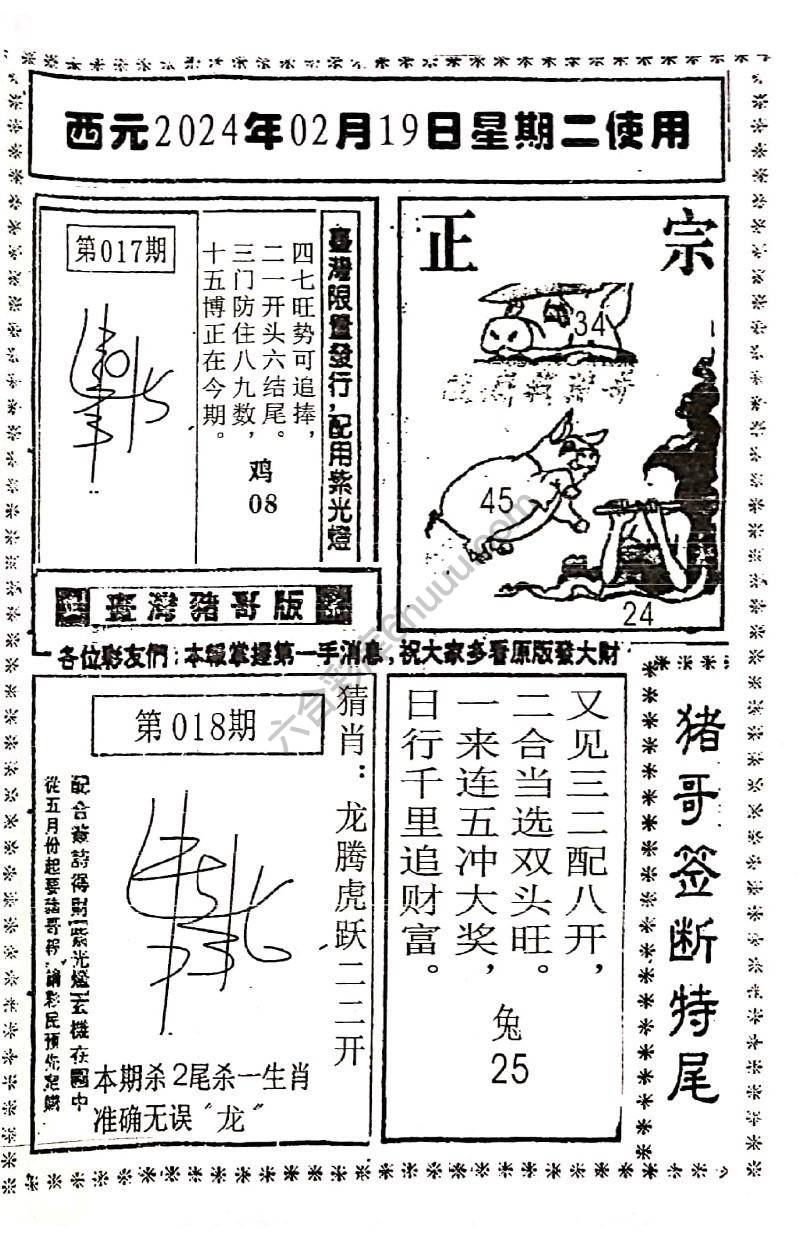 西元2024年02月19日星期二使用
第017期
四七旺势可追捧，
二一开头六结尾。
三门防住八九数，
十五博正在今期。
鸡
08
臺灣限量發行，配用紫光燈
正宗
34
45
24
臺灣豬哥版
各位彩友們：本報掌握第一手消息，祝大家多看原版發大財
第018期
猜肖：龙腾虎跃二二开
配合簽詩得財[紫光燈]玄機在圖中
從五月份起要諸哥
彩民預先定購
本期杀2尾杀一生肖
准确无误“龙”
又见三二配八开，
二合当选双头旺。
一来连五冲大奖，
日行千里追财富。
兔
25
猪哥签断特尾
六合彩库6huuu.com